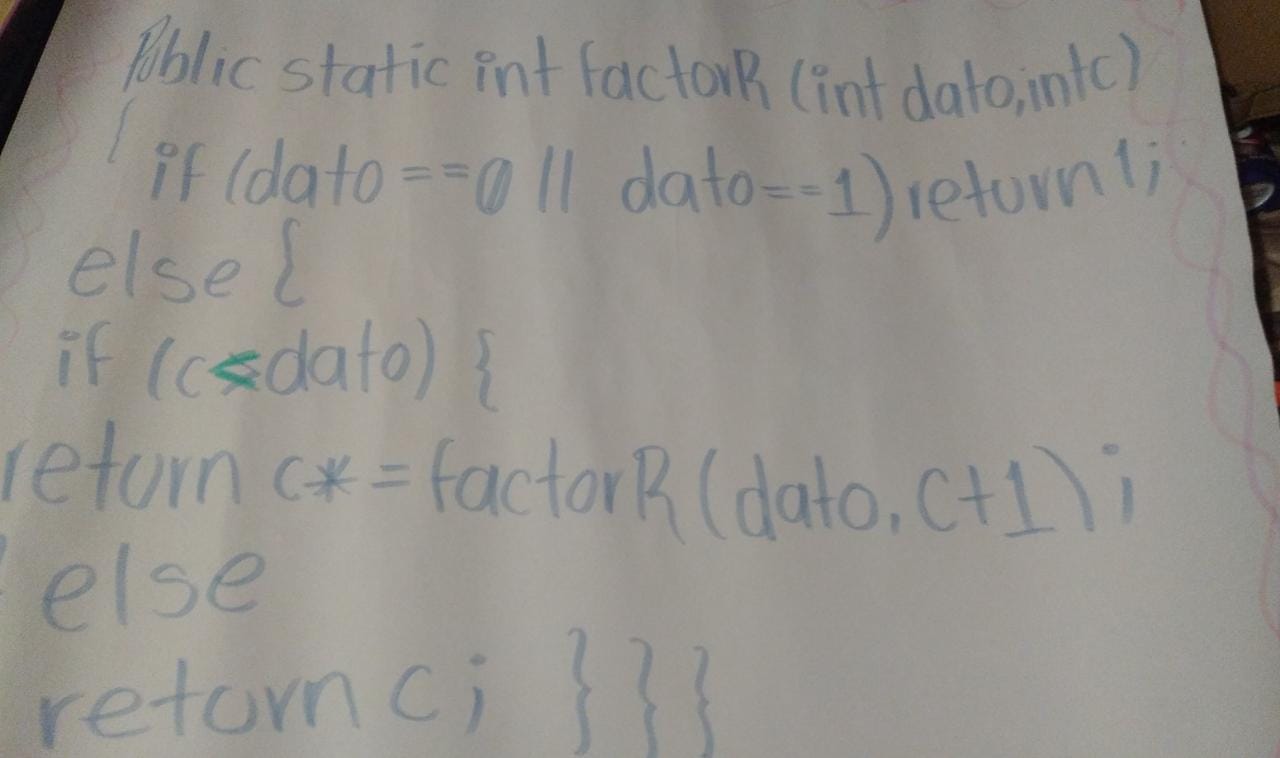 Public static int factorR (int dato, int c)
{ if (dato == 0 || dato == 1) return 1;
else {
if (c < dato) {
return c *= factorR (dato, c+1);
} else
return c; } } }